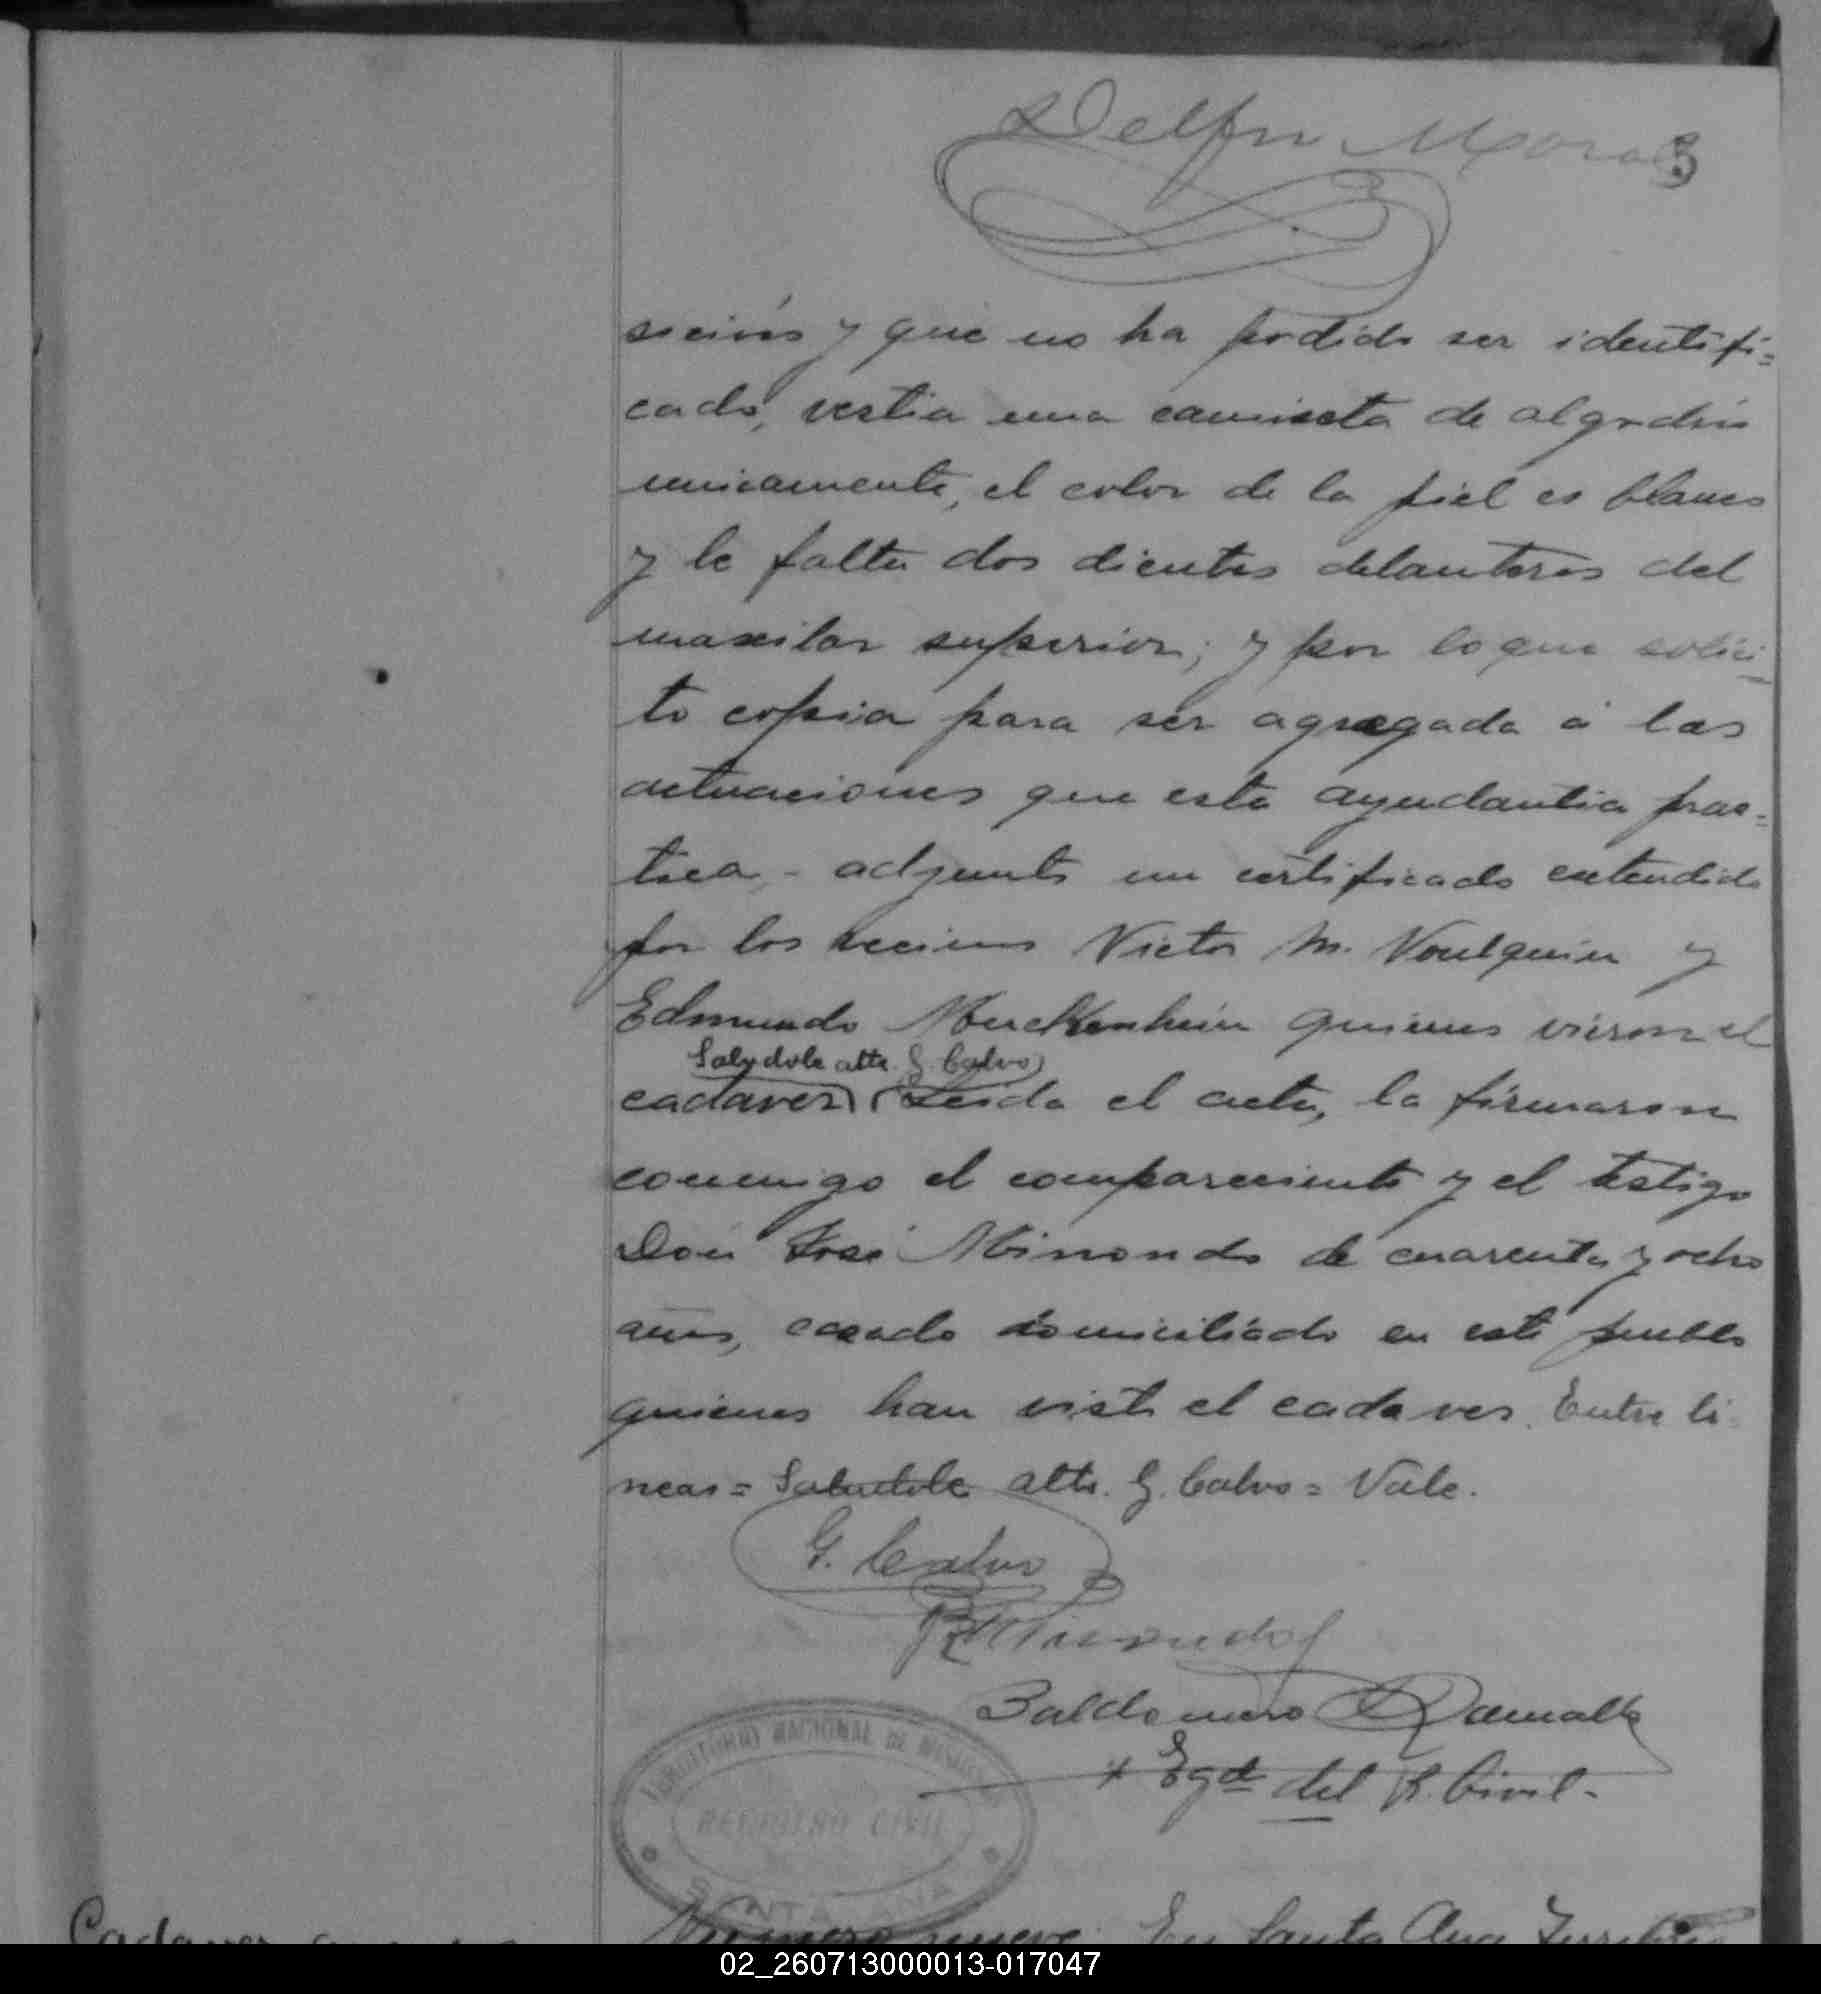 Delfin Morales
3
sicion y que no ha podido ser identifi=
cado, vestia una camiseta de algodón
unicamente, el color de la piel es blanco
y le falta dos dientes delanteros del
maxilar superior; y por lo que solici-
to copia para ser agregada á las
actuaciones que esta ayudantia prac=
tica - adjunto un certificado extendido
por los vecinos Victor M. Voulquin y
Edmundo Muckenheim quienes vieron el
Saludole atte. G. Calvo)
cadaver) (Leida el acta, la firmaron
conmigo el compareciente y el testigo
Don José Minondo de cuarenta y ocho
años, casado domiciliado en este pueblo
quienes han visto el cadaver. Entre li-
neas = Saludole atte. G. Calvo = Vale.
G. Calvo
Minondo
Baldomero
Egdo del R. Civil-
TERRITORIO NACIONAL DE MISIONES
REGISTRO CIVIL
SANTA ANA
Cadaver
Numero nueve. En Santa Ana Territorio
02_260713000013-017047